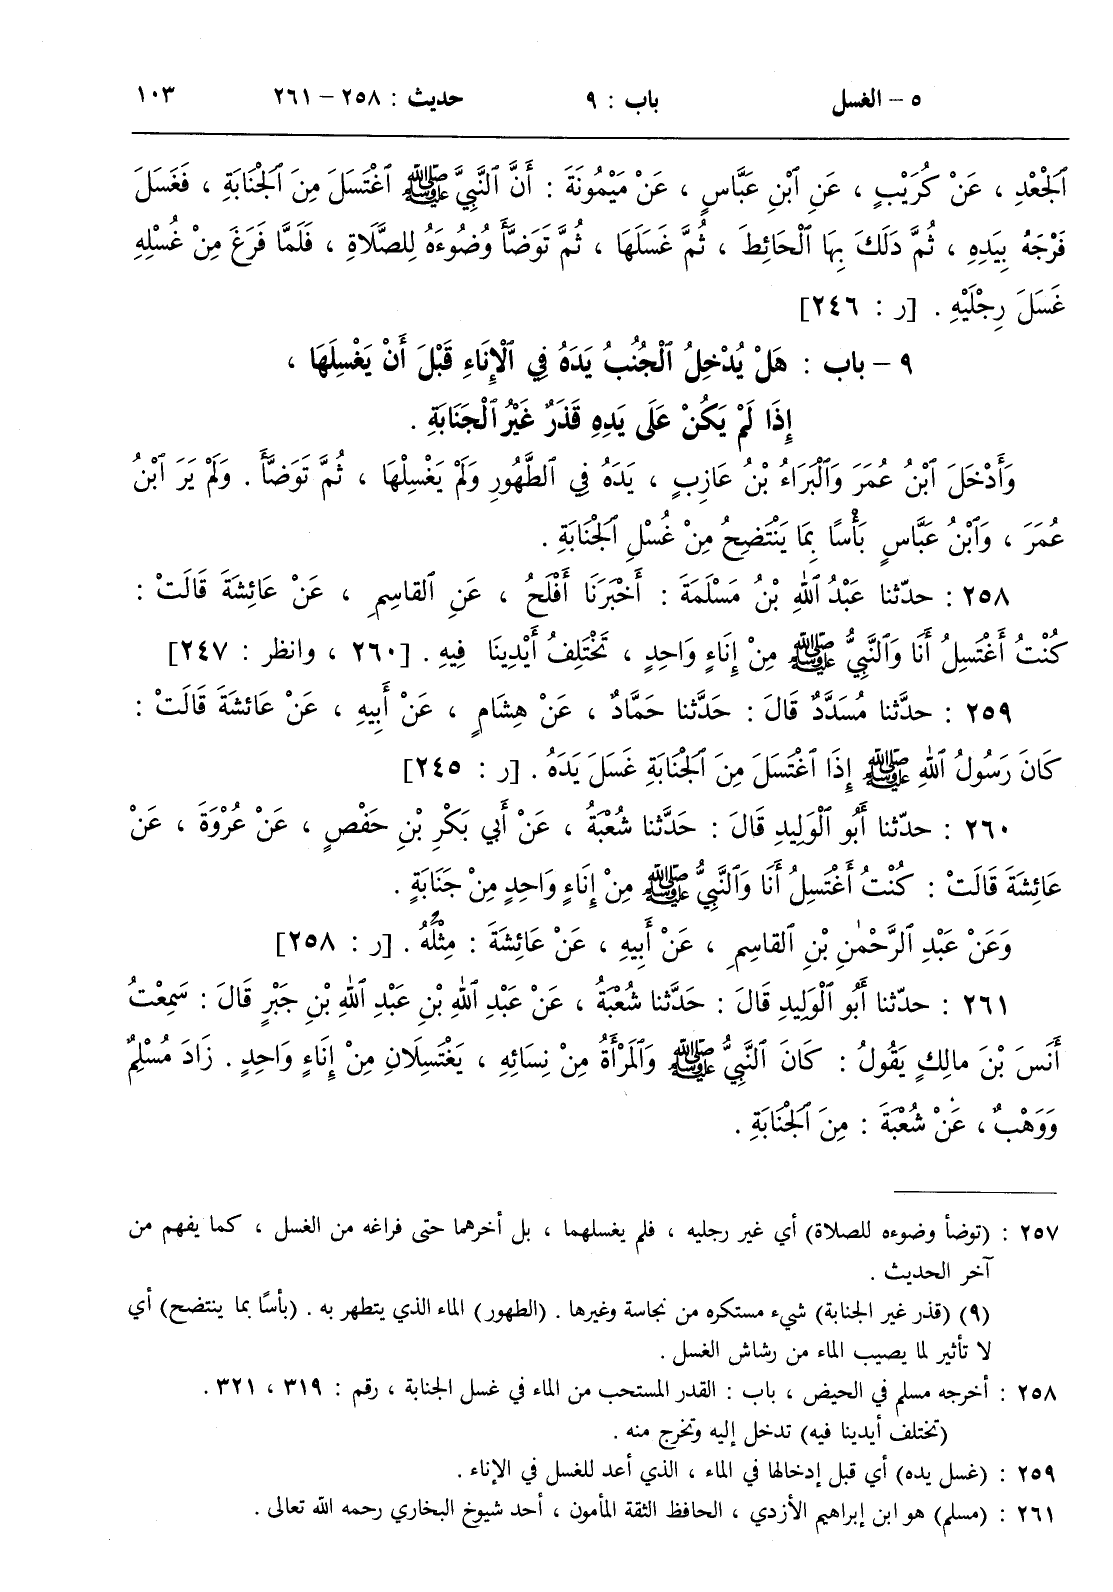 ٥ – الغسل باب : ٩ حديث : ٢٥٨ – ٢٦١ ١٠٣
ٱلْجَعْدِ ، عَنْ كُرَيْبٍ ، عَنِ ٱبْنِ عَبَّاسٍ ، عَنْ مَيْمُونَةَ : أَنَّ ٱلنَّبِيَّ ﷺ ٱغْتَسَلَ مِنَ ٱلْجَنَابَةِ ، فَغَسَلَ
فَرْجَهُ بِيَدِهِ ، ثُمَّ دَلَكَ بِهَا ٱلْحَائِطَ ، ثُمَّ غَسَلَهَا ، ثُمَّ تَوَضَّأَ وُضُوءَهُ لِلصَّلَاةِ ، فَلَمَّا فَرَغَ مِنْ غُسْلِهِ
غَسَلَ رِجْلَيْهِ . [ر : ٢٤٦]
٩ – باب : هَلْ يُدْخِلُ ٱلْجُنُبُ يَدَهُ فِي ٱلْإِنَاءِ قَبْلَ أَنْ يَغْسِلَهَا ،
إِذَا لَمْ يَكُنْ عَلَى يَدِهِ قَذَرٌ غَيْرُ ٱلْجَنَابَةِ .
وَأَدْخَلَ ٱبْنُ عُمَرَ وَٱلْبَرَاءُ بْنُ عَازِبٍ ، يَدَهُ فِي ٱلطَّهُورِ وَلَمْ يَغْسِلْهَا ، ثُمَّ تَوَضَّأَ . وَلَمْ يَرَ ٱبْنُ
عُمَرَ ، وَٱبْنُ عَبَّاسٍ بَأْسًا بِمَا يَنْتَضِحُ مِنْ غُسْلِ ٱلْجَنَابَةِ .
٢٥٨ : حدّثنا عَبْدُ ٱللهِ بْنُ مَسْلَمَةَ : أَخْبَرَنَا أَفْلَحُ ، عَنِ ٱلقاسِمِ ، عَنْ عَائِشَةَ قَالَتْ :
كُنْتُ أَغْتَسِلُ أَنَا وَٱلنَّبِيُّ ﷺ مِنْ إِنَاءٍ وَاحِدٍ ، تَخْتَلِفُ أَيْدِينَا فِيهِ . [٢٦٠ ، وانظر : ٢٤٧]
٢٥٩ : حدّثنا مُسَدَّدٌ قَالَ : حَدَّثنا حَمَّادٌ ، عَنْ هِشَامٍ ، عَنْ أَبِيهِ ، عَنْ عَائِشَةَ قَالَتْ :
كَانَ رَسُولُ ٱللهِ ﷺ إِذَا ٱغْتَسَلَ مِنَ ٱلْجَنَابَةِ غَسَلَ يَدَهُ . [ر : ٢٤٥]
٢٦٠ : حدّثنا أَبُو ٱلْوَلِيدِ قَالَ : حَدَّثنا شُعْبَةُ ، عَنْ أَبِي بَكْرِ بْنِ حَفْصٍ ، عَنْ عُرْوَةَ ، عَنْ
عَائِشَةَ قَالَتْ : كُنْتُ أَغْتَسِلُ أَنَا وَٱلنَّبِيُّ ﷺ مِنْ إِنَاءٍ وَاحِدٍ مِنْ جَنَابَةٍ .
وَعَنْ عَبْدِ ٱلرَّحْمٰنِ بْنِ ٱلقاسِمِ ، عَنْ أَبِيهِ ، عَنْ عَائِشَةَ : مِثْلُهُ . [ر : ٢٥٨]
٢٦١ : حدّثنا أَبُو ٱلْوَلِيدِ قَالَ : حَدَّثنا شُعْبَةُ ، عَنْ عَبْدِ ٱللهِ بْنِ عَبْدِ ٱللهِ بْنِ جَبْرٍ قَالَ : سَمِعْتُ
أَنَسَ بْنَ مالِكٍ يَقُولُ : كَانَ ٱلنَّبِيُّ ﷺ وَٱلْمَرْأَةُ مِنْ نِسَائِهِ ، يَغْتَسِلَانِ مِنْ إِنَاءٍ وَاحِدٍ . زَادَ مُسْلِمٌ
وَوَهْبٌ ، عَنْ شُعْبَةَ : مِنَ ٱلْجَنَابَةِ .
٢٥٧ : (توضأ وضوءه للصلاة) أي غير رجليه ، فلم يغسلهما ، بل أخرهما حتى فراغه من الغسل ، كما يفهم من
آخر الحديث .
(٩) (قذر غير الجنابة) شيء مستكره من نجاسة وغيرها . (الطهور) الماء الذي يتطهر به . (بأسًا بما ينتضح) أي
لا تأثير لما يصيب الماء من رشاش الغسل .
٢٥٨ : أخرجه مسلم في الحيض ، باب : القدر المستحب من الماء في غسل الجنابة ، رقم : ٣١٩ ، ٣٢١ .
(تختلف أيدينا فيه) تدخل إليه وتخرج منه .
٢٥٩ : (غسل يده) أي قبل إدخالها في الماء ، الذي أعد للغسل في الإناء .
٢٦١ : (مسلم) هو ابن إبراهيم الأزدي ، الحافظ الثقة المأمون ، أحد شيوخ البخاري رحمه الله تعالى .